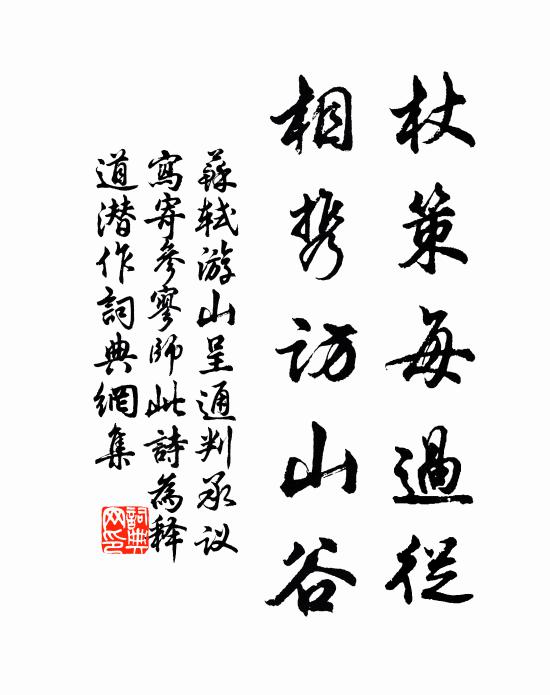 杖策每過從
相携訪山谷
蘇轼游山呈通判承议
寫寄參寥師此詩為释
道潜作詞典網集
詞典网印